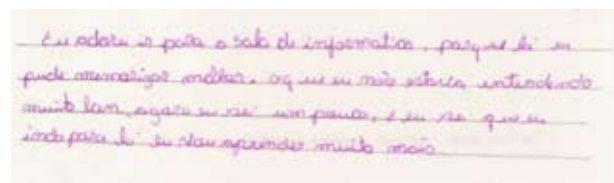 Eu adoru ir para a sala de informatica, porque lá eu
pude memorizar melhor, oq ue eu não estava entendendo
muito bem, agora eu sei um pouco, e eu sei que eu
indo para lá eu vou aprender muito mais.